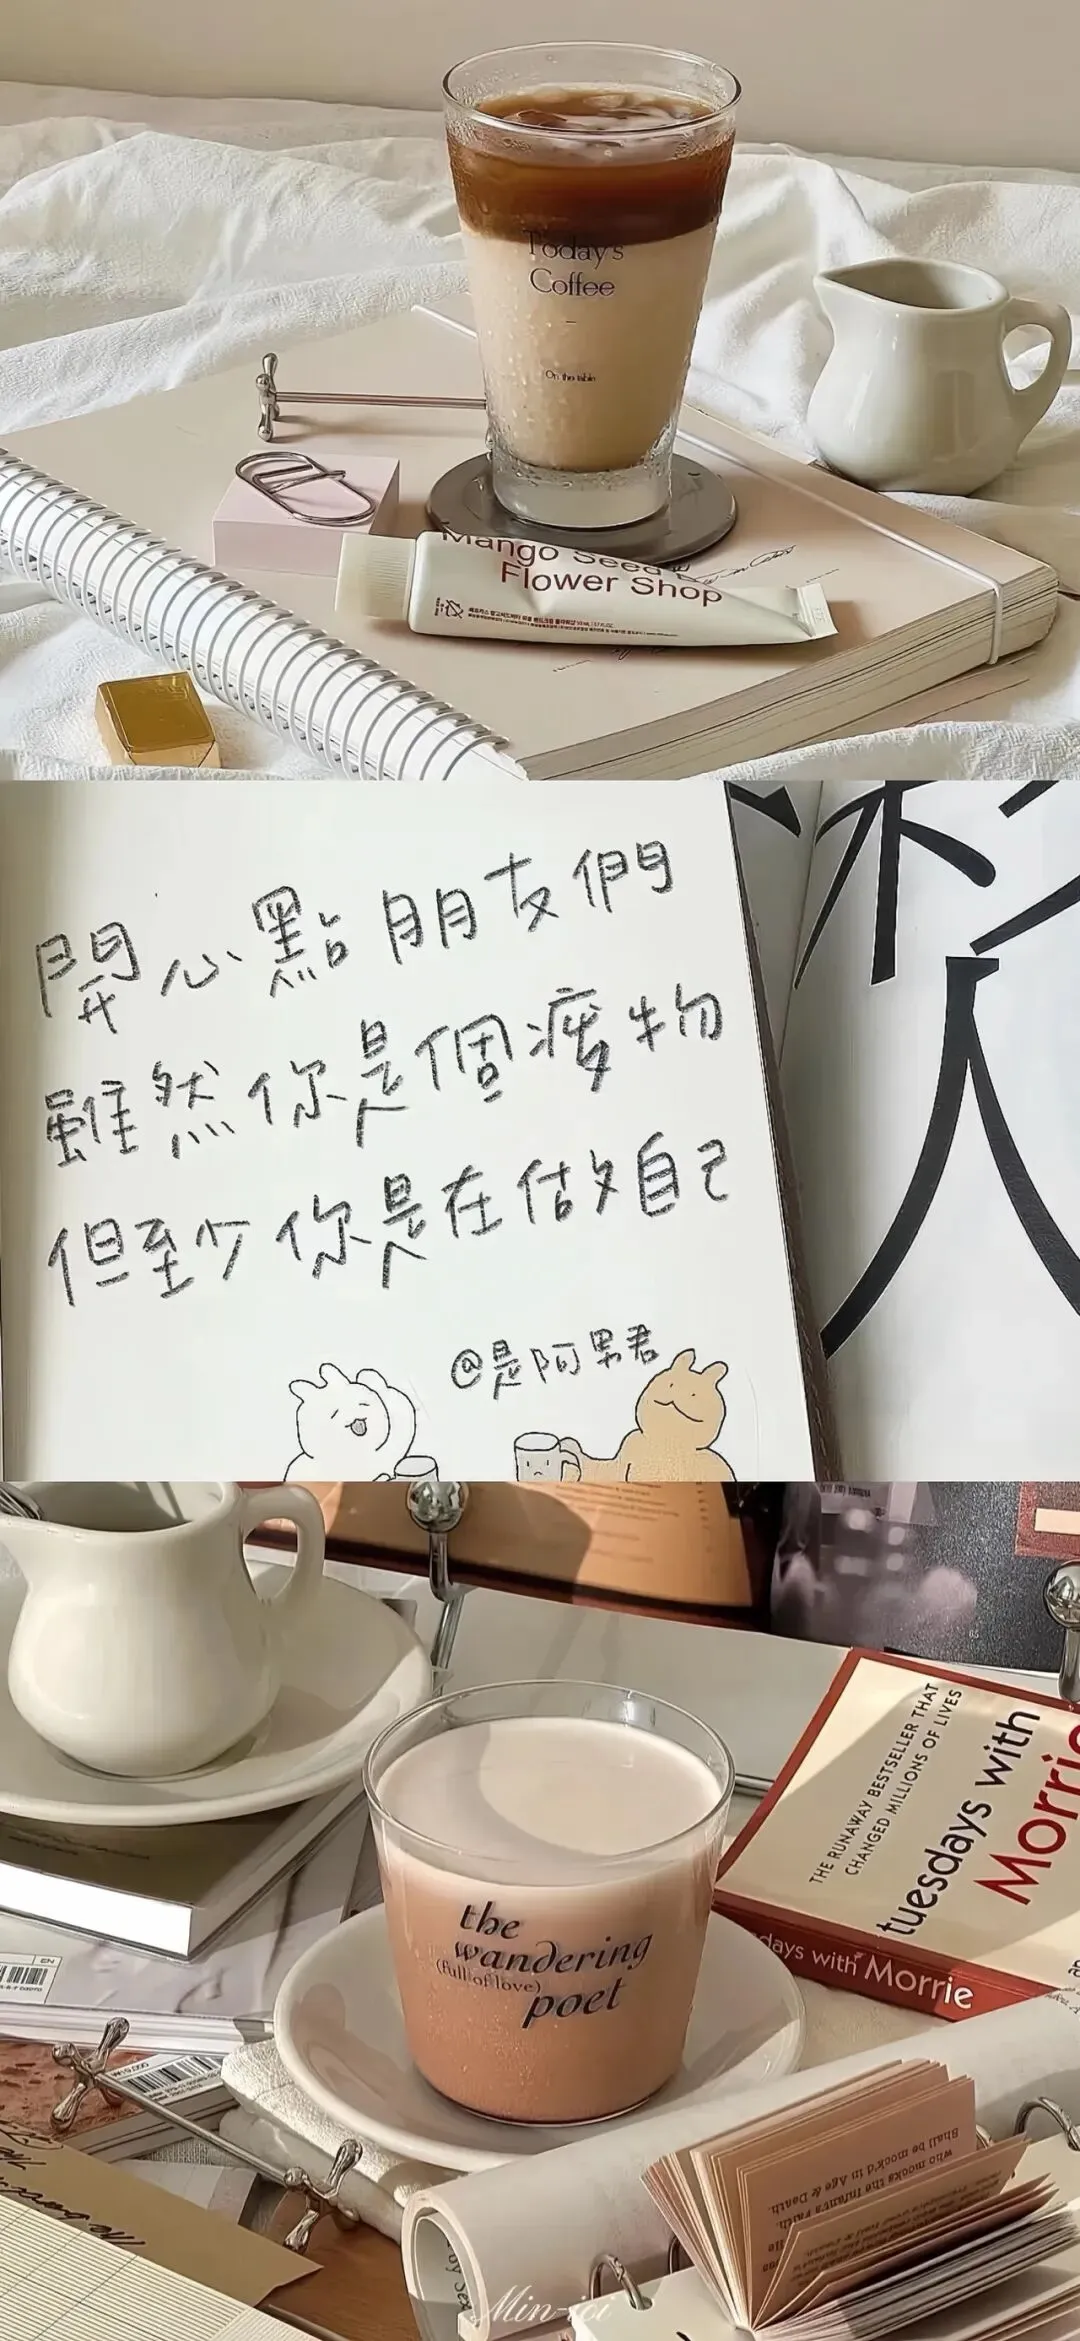 Today's
Coffee
On the table
Mango Seed
Flower Shop
開心點朋友們
雖然你是個廢物
但至少你是在做自己
@是阿男君
人
THE RUNAWAY BESTSELLER THAT
CHANGED MILLIONS OF LIVES
tuesdays with
Morrie
days with Morrie
EN
65
the
wandering
(full of love)
poet
Shall be mock'd in Age & Death.
who mocks the Infant's Faith
Min-ioi